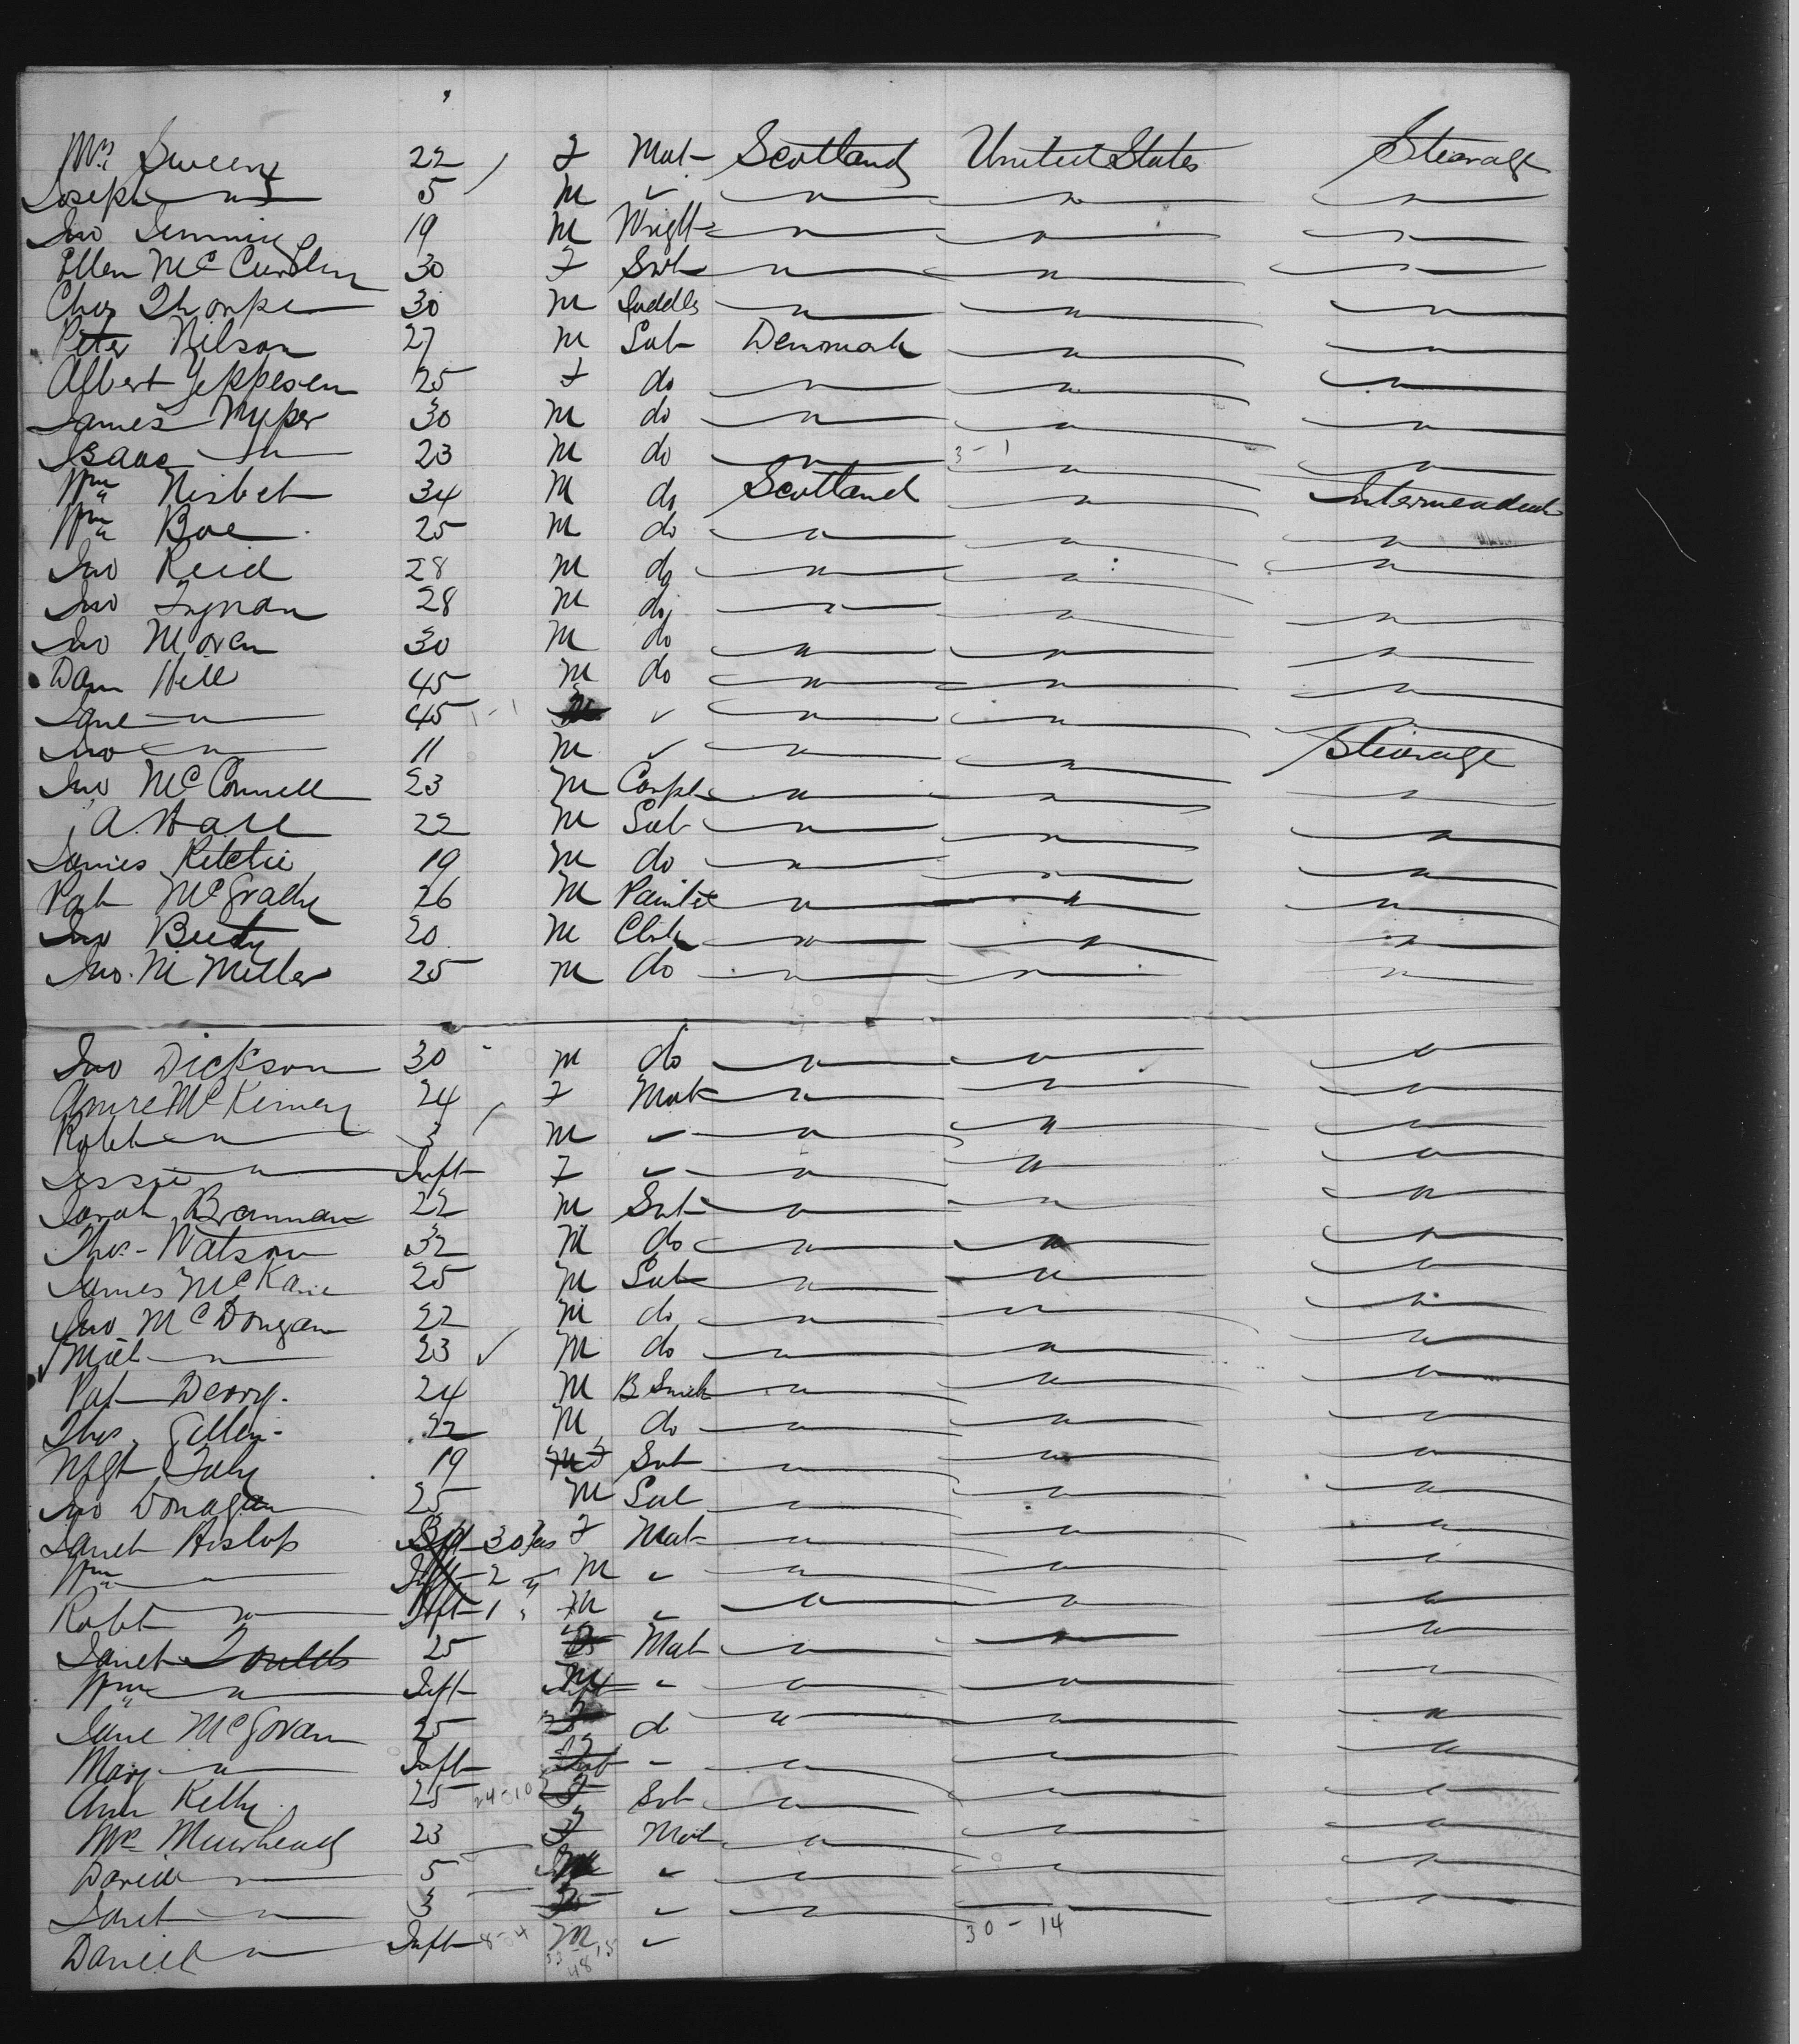 Mrs Sweeny 22 F Mat Scotland United States Steerage
Joseph " 5 M " " " "
Jno 19 M Wright " " "
Ellen McCurdley 30 F Svt " " "
Chas Thorpe 30 M Saddler " " "
Peter Nilson 27 M Lab Denmark " "
Albert Jeppesen 25 F do " " "
James Nyper 30 M do " " "
Isaac " 23 M do " 3-1 " "
Wm Nisbet 34 M do Scotland " Intermediate
Wm Boe 25 M do " " "
Jno Reid 28 M do " " "
Jno 28 M do " " "
Jno Moren 30 M do " " "
Dam Hill 45 M do " " "
Jane " 45 1-1 " " " "
Jno " 11 M " " " Steerage
Jno McConnell 23 M Carpt " " "
A. Hall 22 M Lab " " "
James Ritchie 19 M do " " "
Pat McGrady 26 M Painter " " "
Jno Beety 20 M Clerk " " "
Jno. M Miller 25 M do " " "
Jno Dickson 30 M do " " "
Annie McKinney 24 F Mat " " "
Robt " 3 M " " " "
Jessie " Inft F " " " "
Sarah Brannan 22 M Svt " " "
Thos. Watson 32 M do " " "
James McKane 25 M Lab " " "
Jno McDougan 22 M do " " "
Michl " 23 M do " " "
Pat Derry. 24 M B Smith " " "
Thos. Gillen 22 M do " " "
Mgt July 19 F Svt " " "
Jno Donagan 25 M Lab " " "
Janet Hislop 30 yrs F Mat " " "
Wm " Inft 2 " M " " " "
Robt " Inft 1 " M " " " "
Janet Foulds 25 Mat " " "
Wm " Inft M " " " "
Jane McGovan 25 do " " "
Mary " Inft " " " "
Ann Kelly 25 24-10 F Svt " " "
Mrs Muirhead 23 F Mat " " "
David " 5 M " " " "
Janet " 3 F " " " "
Daniel " Inft 8-4 M " 30-14
33 15
48